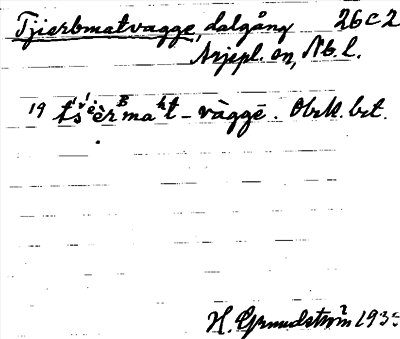 Tjierbmatvagge, dalgång 26C2
Arjepl. sn, Nb. l.
19 t́śi̯èrᴮmaʰt - vàggē. Obek. bet.
H. Grundström 193